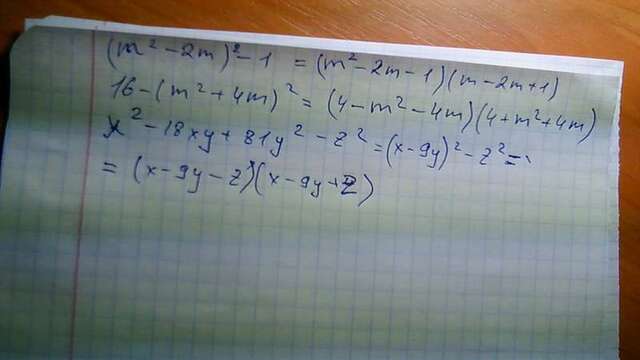 (m² - 2m)² - 1 = (m² - 2m - 1)(m - 2m + 1)
16 - (m² + 4m)² = (4 - m² - 4m)(4 + m² + 4m)
x² - 18xy + 81y² - z² = (x - 9y)² - z² =
= (x - 9y - z)(x - 9y + z)